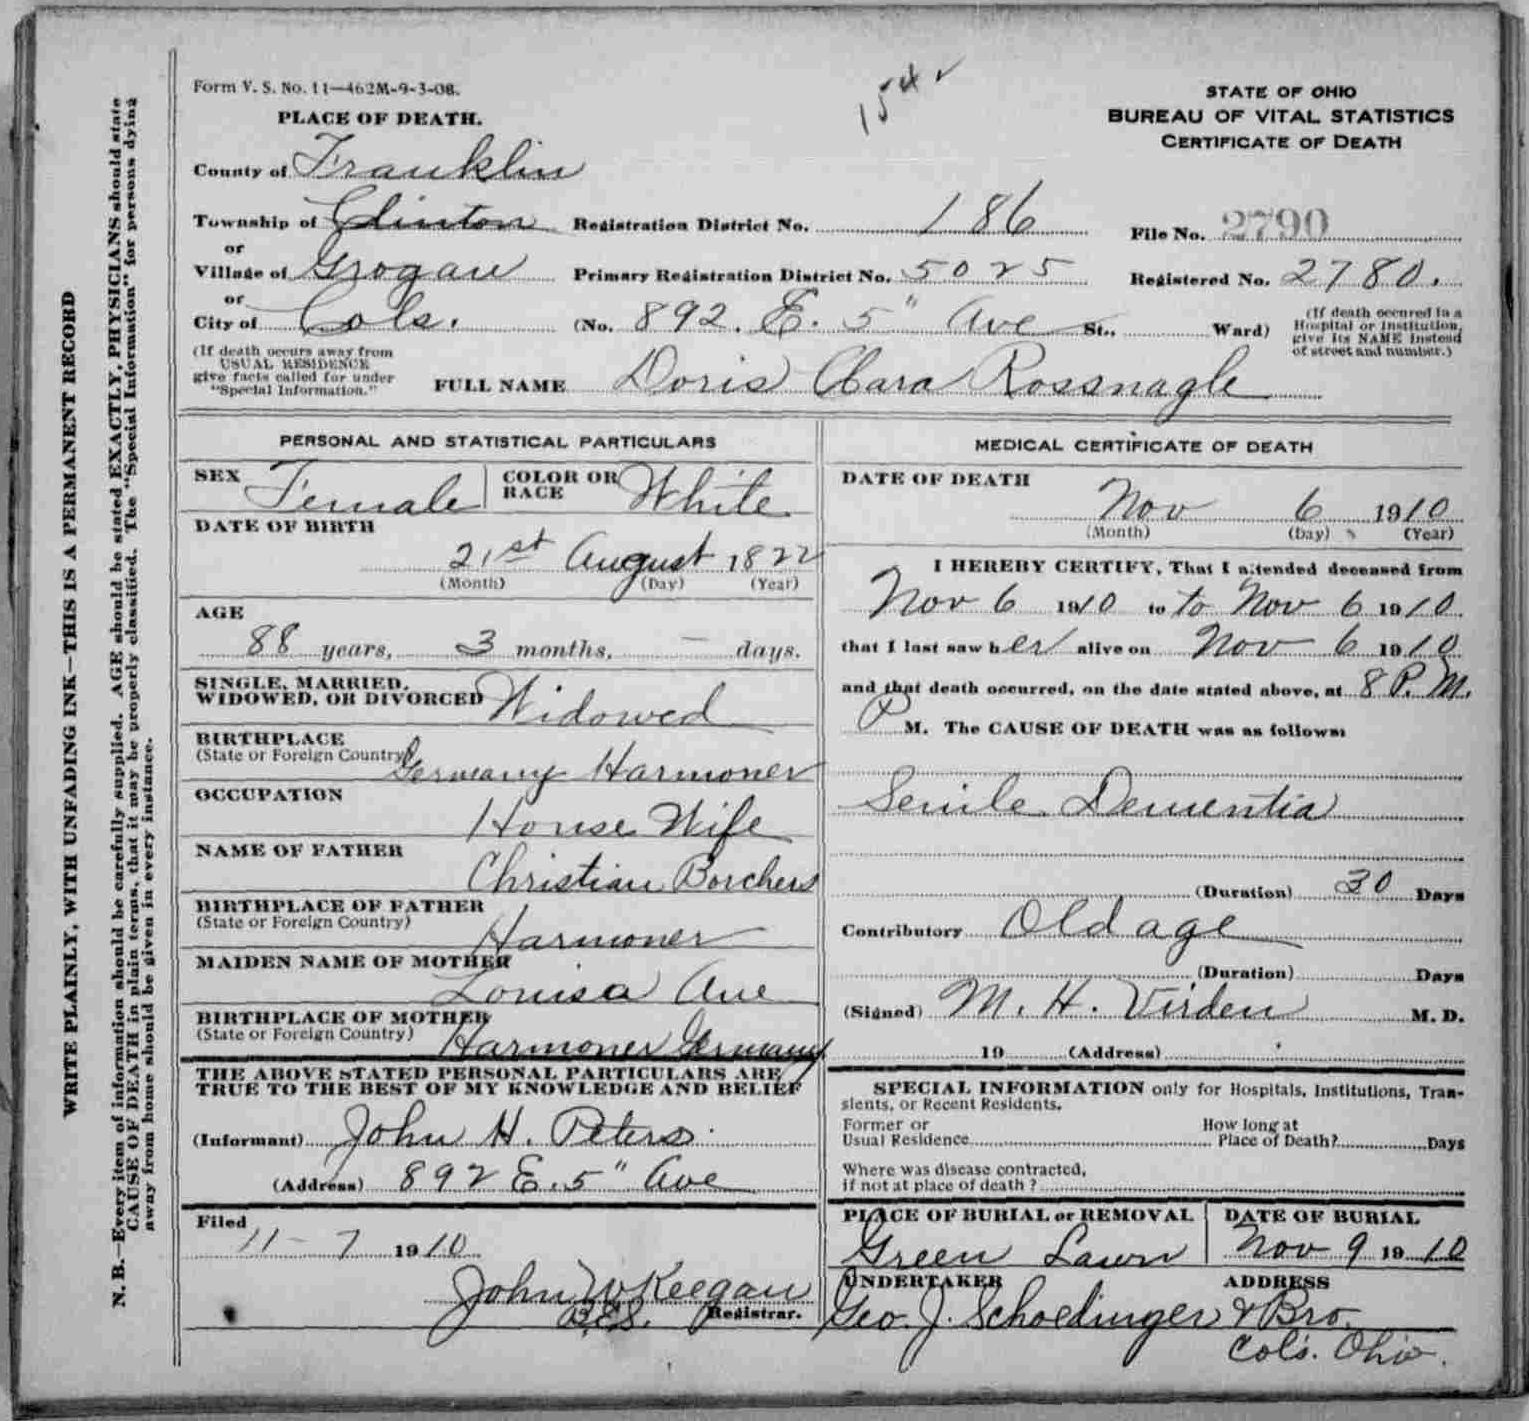 Form V. S. No. 11—462M-9-3-08.
154
PLACE OF DEATH.
STATE OF OHIO
BUREAU OF VITAL STATISTICS
CERTIFICATE OF DEATH
County of Franklin
Township of Clinton Registration District No. 186 File No. 2790
or
Village of Grogan Primary Registration District No. 5025 Registered No. 2780.
or
City of Cols. (No. 892. E. 5" Ave St., Ward)
(If death occured in a
Hospital or institution,
give its NAME instead
of street and number.)
(If death occurs away from
USUAL RESIDENCE
give facts called for under
"Special Information."
FULL NAME Doris Clara Rossnagle
PERSONAL AND STATISTICAL PARTICULARS
SEX Female COLOR OR
RACE White
DATE OF BIRTH
21st August 1822
(Month) (Day) (Year)
AGE
88 years, 3 months, — days.
SINGLE, MARRIED,
WIDOWED, OR DIVORCED Widowed
BIRTHPLACE
(State or Foreign Country) Germany Harmoner
OCCUPATION
House Wife
NAME OF FATHER
Christian Borchers
BIRTHPLACE OF FATHER
(State or Foreign Country)
Harmoner
MAIDEN NAME OF MOTHER
Louisa Aue
BIRTHPLACE OF MOTHER
(State or Foreign Country) Harmoner Germany
THE ABOVE STATED PERSONAL PARTICULARS ARE
TRUE TO THE BEST OF MY KNOWLEDGE AND BELIEF
(Informant) John H. Peters.
(Address) 892 E. 5" Ave
Filed
11-7 1910
John W Keegan
B.E.S. Registrar.
MEDICAL CERTIFICATE OF DEATH
DATE OF DEATH
Nov 6 1910
(Month) (Day) (Year)
I HEREBY CERTIFY, That I attended deceased from
Nov 6 1910 to to Nov 6 1910
that I last saw her alive on Nov 6 1910
and that death occurred, on the date stated above, at 8 P.M.
P M. The CAUSE OF DEATH was as follows:
Senile Dementia
(Duration) 30 Days
Contributory Old age
(Duration) Days
(Signed) M. H. Virden M. D.
19 (Address)
SPECIAL INFORMATION only for Hospitals, Institutions, Tran-
sients, or Recent Residents.
Former or
Usual Residence
How long at
Place of Death? Days
Where was disease contracted,
if not at place of death ?
PLACE OF BURIAL or REMOVAL DATE OF BURIAL
Green Lawn Nov 9 1910
UNDERTAKER ADDRESS
Geo. J. Schoedinger & Bro.
Cols. Ohio.
WRITE PLAINLY, WITH UNFADING INK—THIS IS A PERMANENT RECORD
N. B.—Every item of information should be carefully supplied. AGE should be stated EXACTLY, PHYSICIANS should state
CAUSE OF DEATH in plain terms, that it may be properly classified. The "Special Information" for persons dying
away from home should be given in every instance.